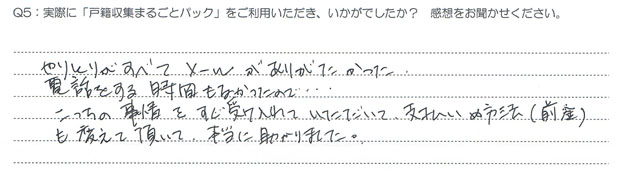 Q5：実際に「戸籍収集まるごとパック」をご利用いただき、いかがでしたか？ 感想をお聞かせください。
やりとりがすべてメールがありがたかった．
電話をする時間もなかったので・・・
こっちの事情をすぐ受け入れていただいて、支払い方法(前
も変えて頂いて、本当に助かりました。